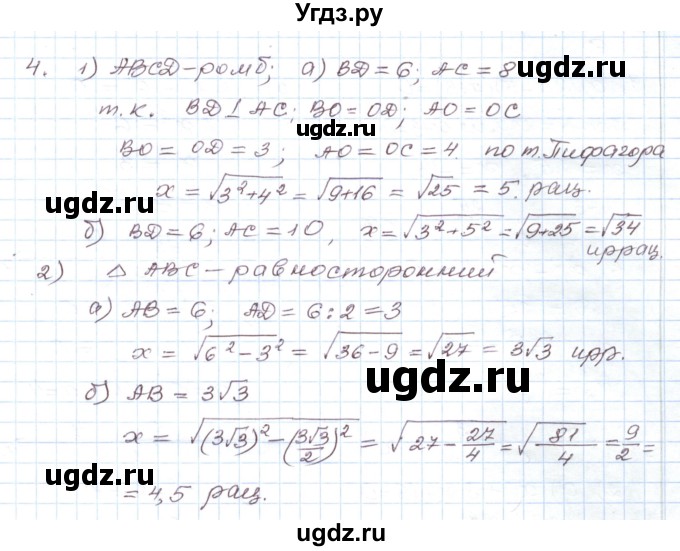 Угдз.ру
4. 1) ABCD-ромб; а) BD = 6; AC = 8
ugdz.ru
т.к. BD ⊥ AC; BO = OD; AO = OC
ugdz.ru
BO = OD = 3; AO = OC = 4 по т. Пифагора
x = √(3²+4²) = √(9+16) = √25 = 5. рац.
ugdz.ru ugdz.ru
б) BD = 6; AC = 10, x = √(3²+5²) = √(9+25) = √34
иррац.
2) △ ABC - равносторонний
ugdz.ru
а) AB = 6; AD = 6:2 = 3
x = √(6²-3²) = √(36-9) = √27 = 3√3 ирр.
ugdz.ru
б) AB = 3√3
x = √((3√3)²-(3√3/2)²) = √(27-27/4) = √(81/4) = 9/2 =
ugdz.ru ugdz.ru
= 4,5 рац.
ugdz.ru